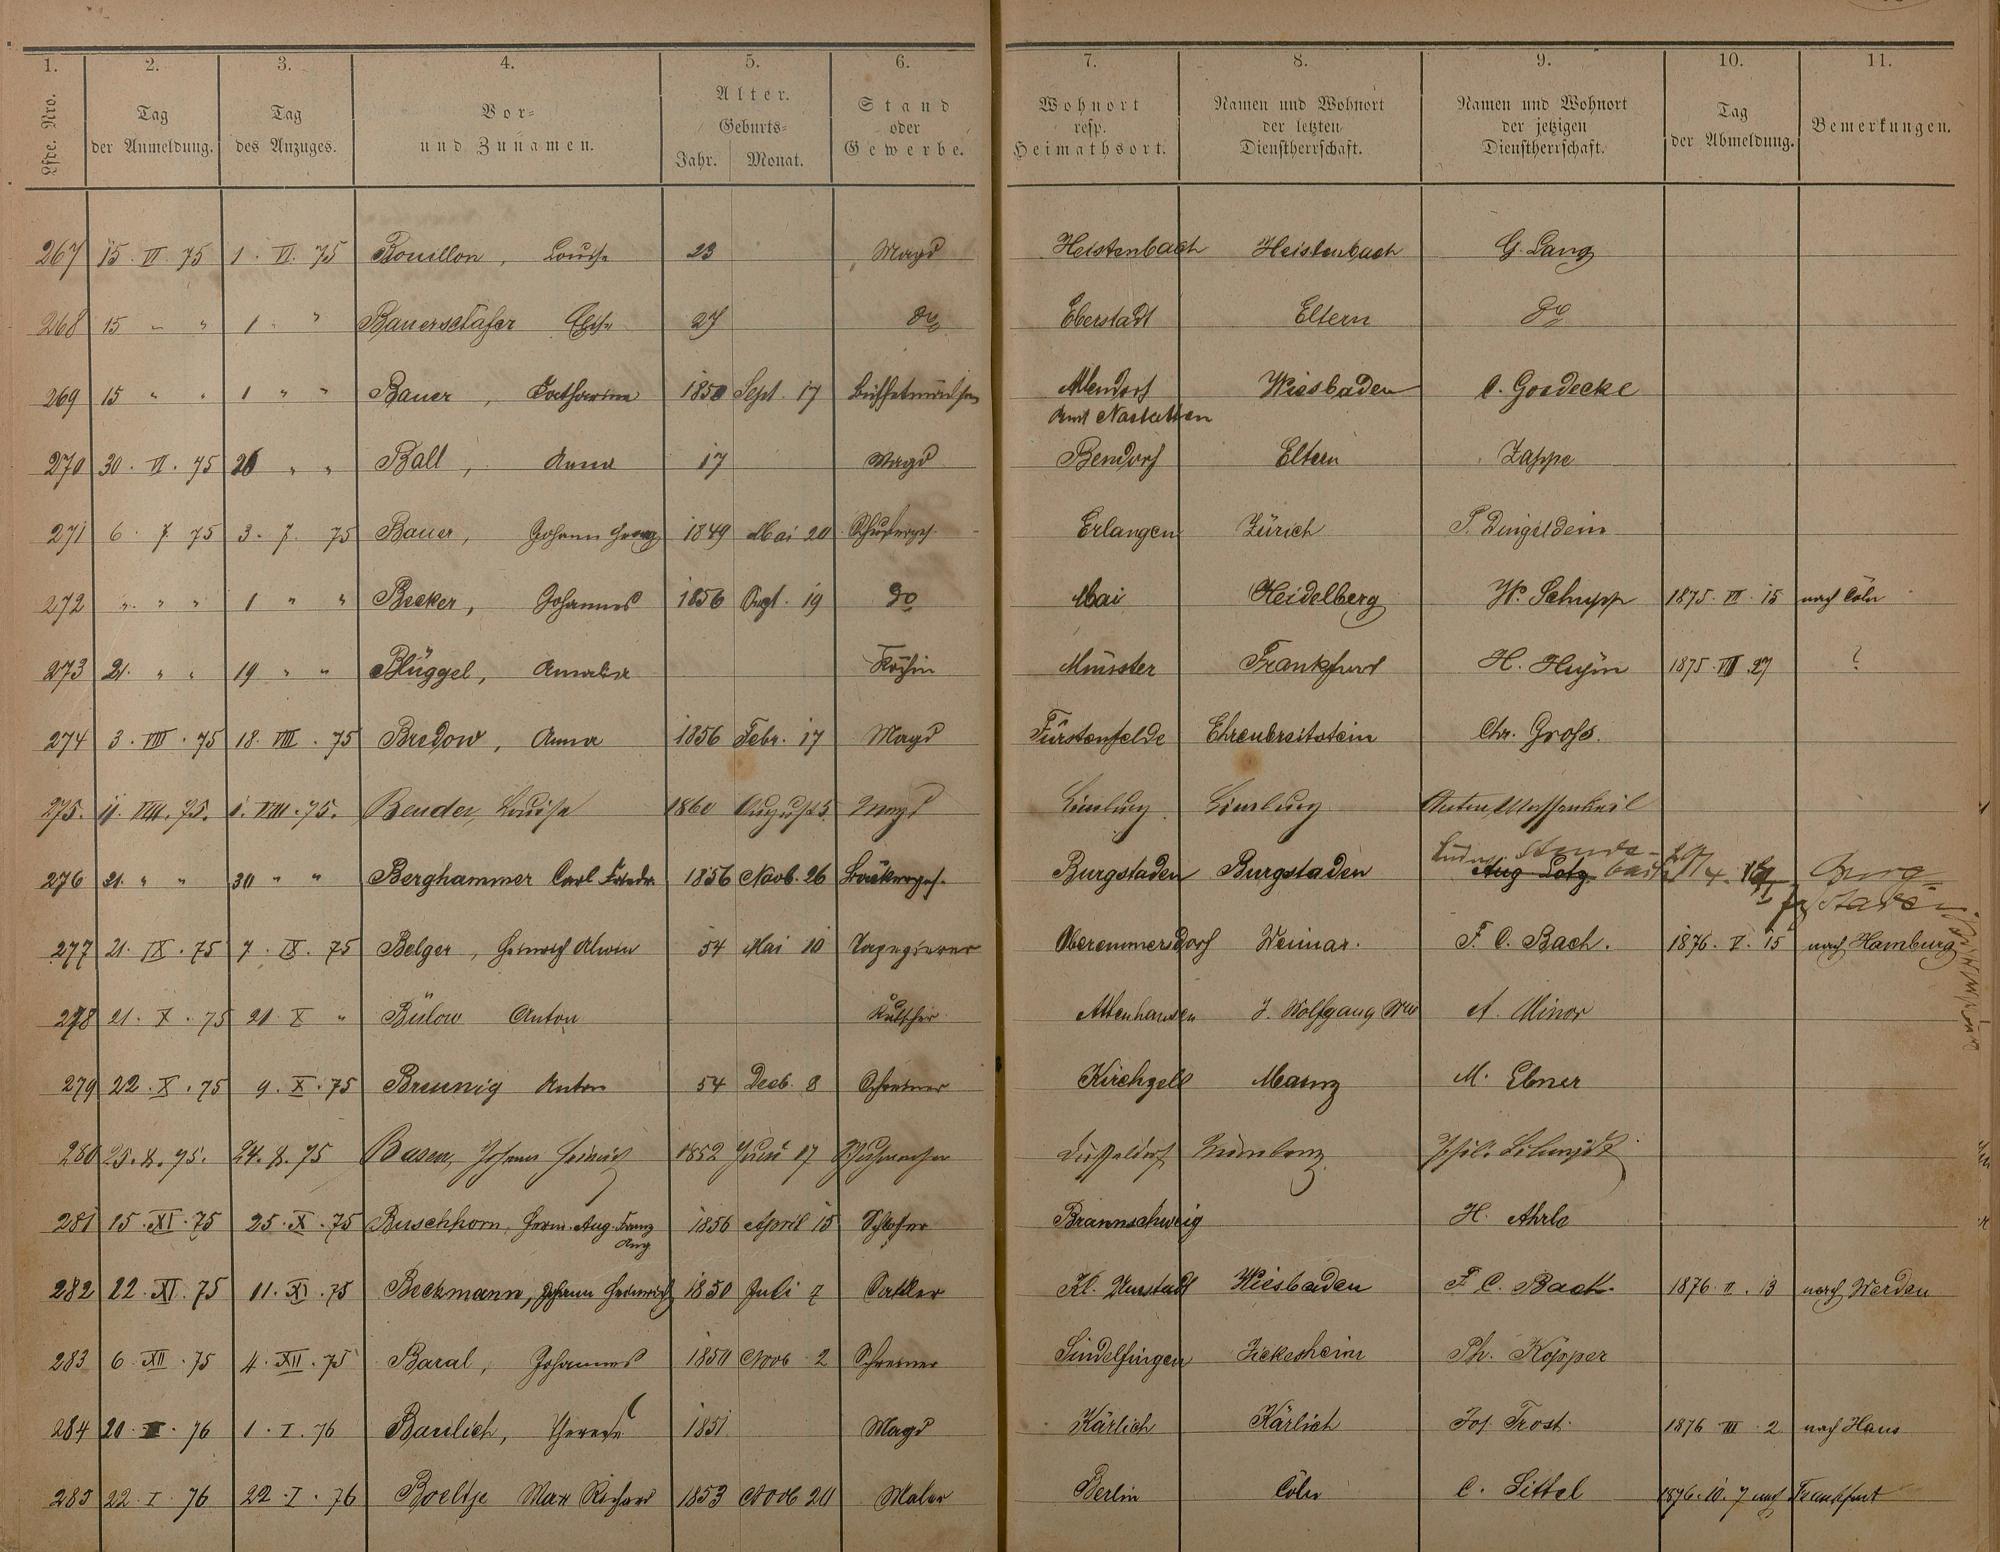 1. 2. 3. 4. 5. 6. 7. 8. 9. 10. 11.
Lfde. Nro. Tag der Anmeldung. Tag des Anzuges. Vor- und Zunamen. Alter. Geburts- Jahr. Monat. Stand oder Gewerbe. Wohnort resp. Heimathsort. Namen und Wohnort der letzten Dienstherrschaft. Namen und Wohnort der jetzigen Dienstherrschaft. Tag der Abmeldung. Bemerkungen.
267 15. VI. 75 1. VI. 75 Bouillon, Louise 23 Magd Heistenbach Heistenbach G. Lang
268 15 " " 1 " " Bauerschäfer 27 do Eberstadt Eltern do
269 15 " " 1 " " Bauer, Catharina 1850 Sept. 17 Wiesbaden C. Goedecke
Amt Nastätten
270 30. VI. 75 26 " " Ball, Anna 17 Magd Bendorf Eltern Zappe
271 6. 7. 75 3. 7. 75 Bauer, Johann Georg 1849 Mai 20 Erlangen Zürich
272 " " " 1 " " Becker, Johannes 1856 19 do Mai Heidelberg W. Schupp 1875. 15 nach Cöln
273 21. " " 19 " " Blüggel, Amalia Köchin Münster Frankfurt H. 1875. 27 ?
274 3. VIII. 75 18. VIII. 75 Bredow, Anna 1856 Febr. 17 Magd Fürstenfelde Ehrenbreitstein Chr. Groß.
275. 11. VIII. 75. 1. VIII. 75. Bender, Louise 1860 August 5. Magd Limburg Limburg Anton Massenkeil
276 21. " " 30 " " Berghammer Carl Friedr. 1856 Novb. 26 Bäckerges. Burgstaden Burgstaden Aug Lotz
277 21. IX. 75 7. IX. 75 Belger, Heinrich Alwin 54 Mai 10 Tapezierer Oberemmersdorf Weimar. F. C. Bach. 1876. V. 15 nach Hamburg
278 21. X. 75 21. X " Bülow Anton Kutscher Attenhausen J. Wolfgang A. Minor
279 22. X. 75 9. X. 75 Breunig Anton 54 Decb. 8 Schreiner Kirchzell Mainz M. Ebner
280 25. X. 75. 24. X. 75 Johann Heinrich 1852 Juni 17 Schuhmacher Düsseldorf Phil. Schmidt
281 15. XI. 75 25. X. 75 Buschhorn, Herm. Aug. Franz 1856 April 15 Schlosser Braunschweig H.
Aug
282 22. XI. 75 11. XI. 75 Beckmann, Johann Heinrich 1850 Juli 7 Sattler Kl. Wiesbaden F. C. Bach. 1876. II. 13 nach Werden
283 6. XII. 75 4. XII. 75 Baral, Johannes 1850 Novb. 2 Schreiner Sindelfingen Ph. Köpper
284 20. 76 1. I. 76 Baulich, Therese 1851 Magd Kärlich Kärlich Jos. Trost. 1876 III. 2 nach Haus
285 22. I. 76 22. I. 76 Boeltje Max Richard 1853 Novb 20 Maler Berlin Cöln C. Sittel 1876. 10. 7 nach Frankfurt